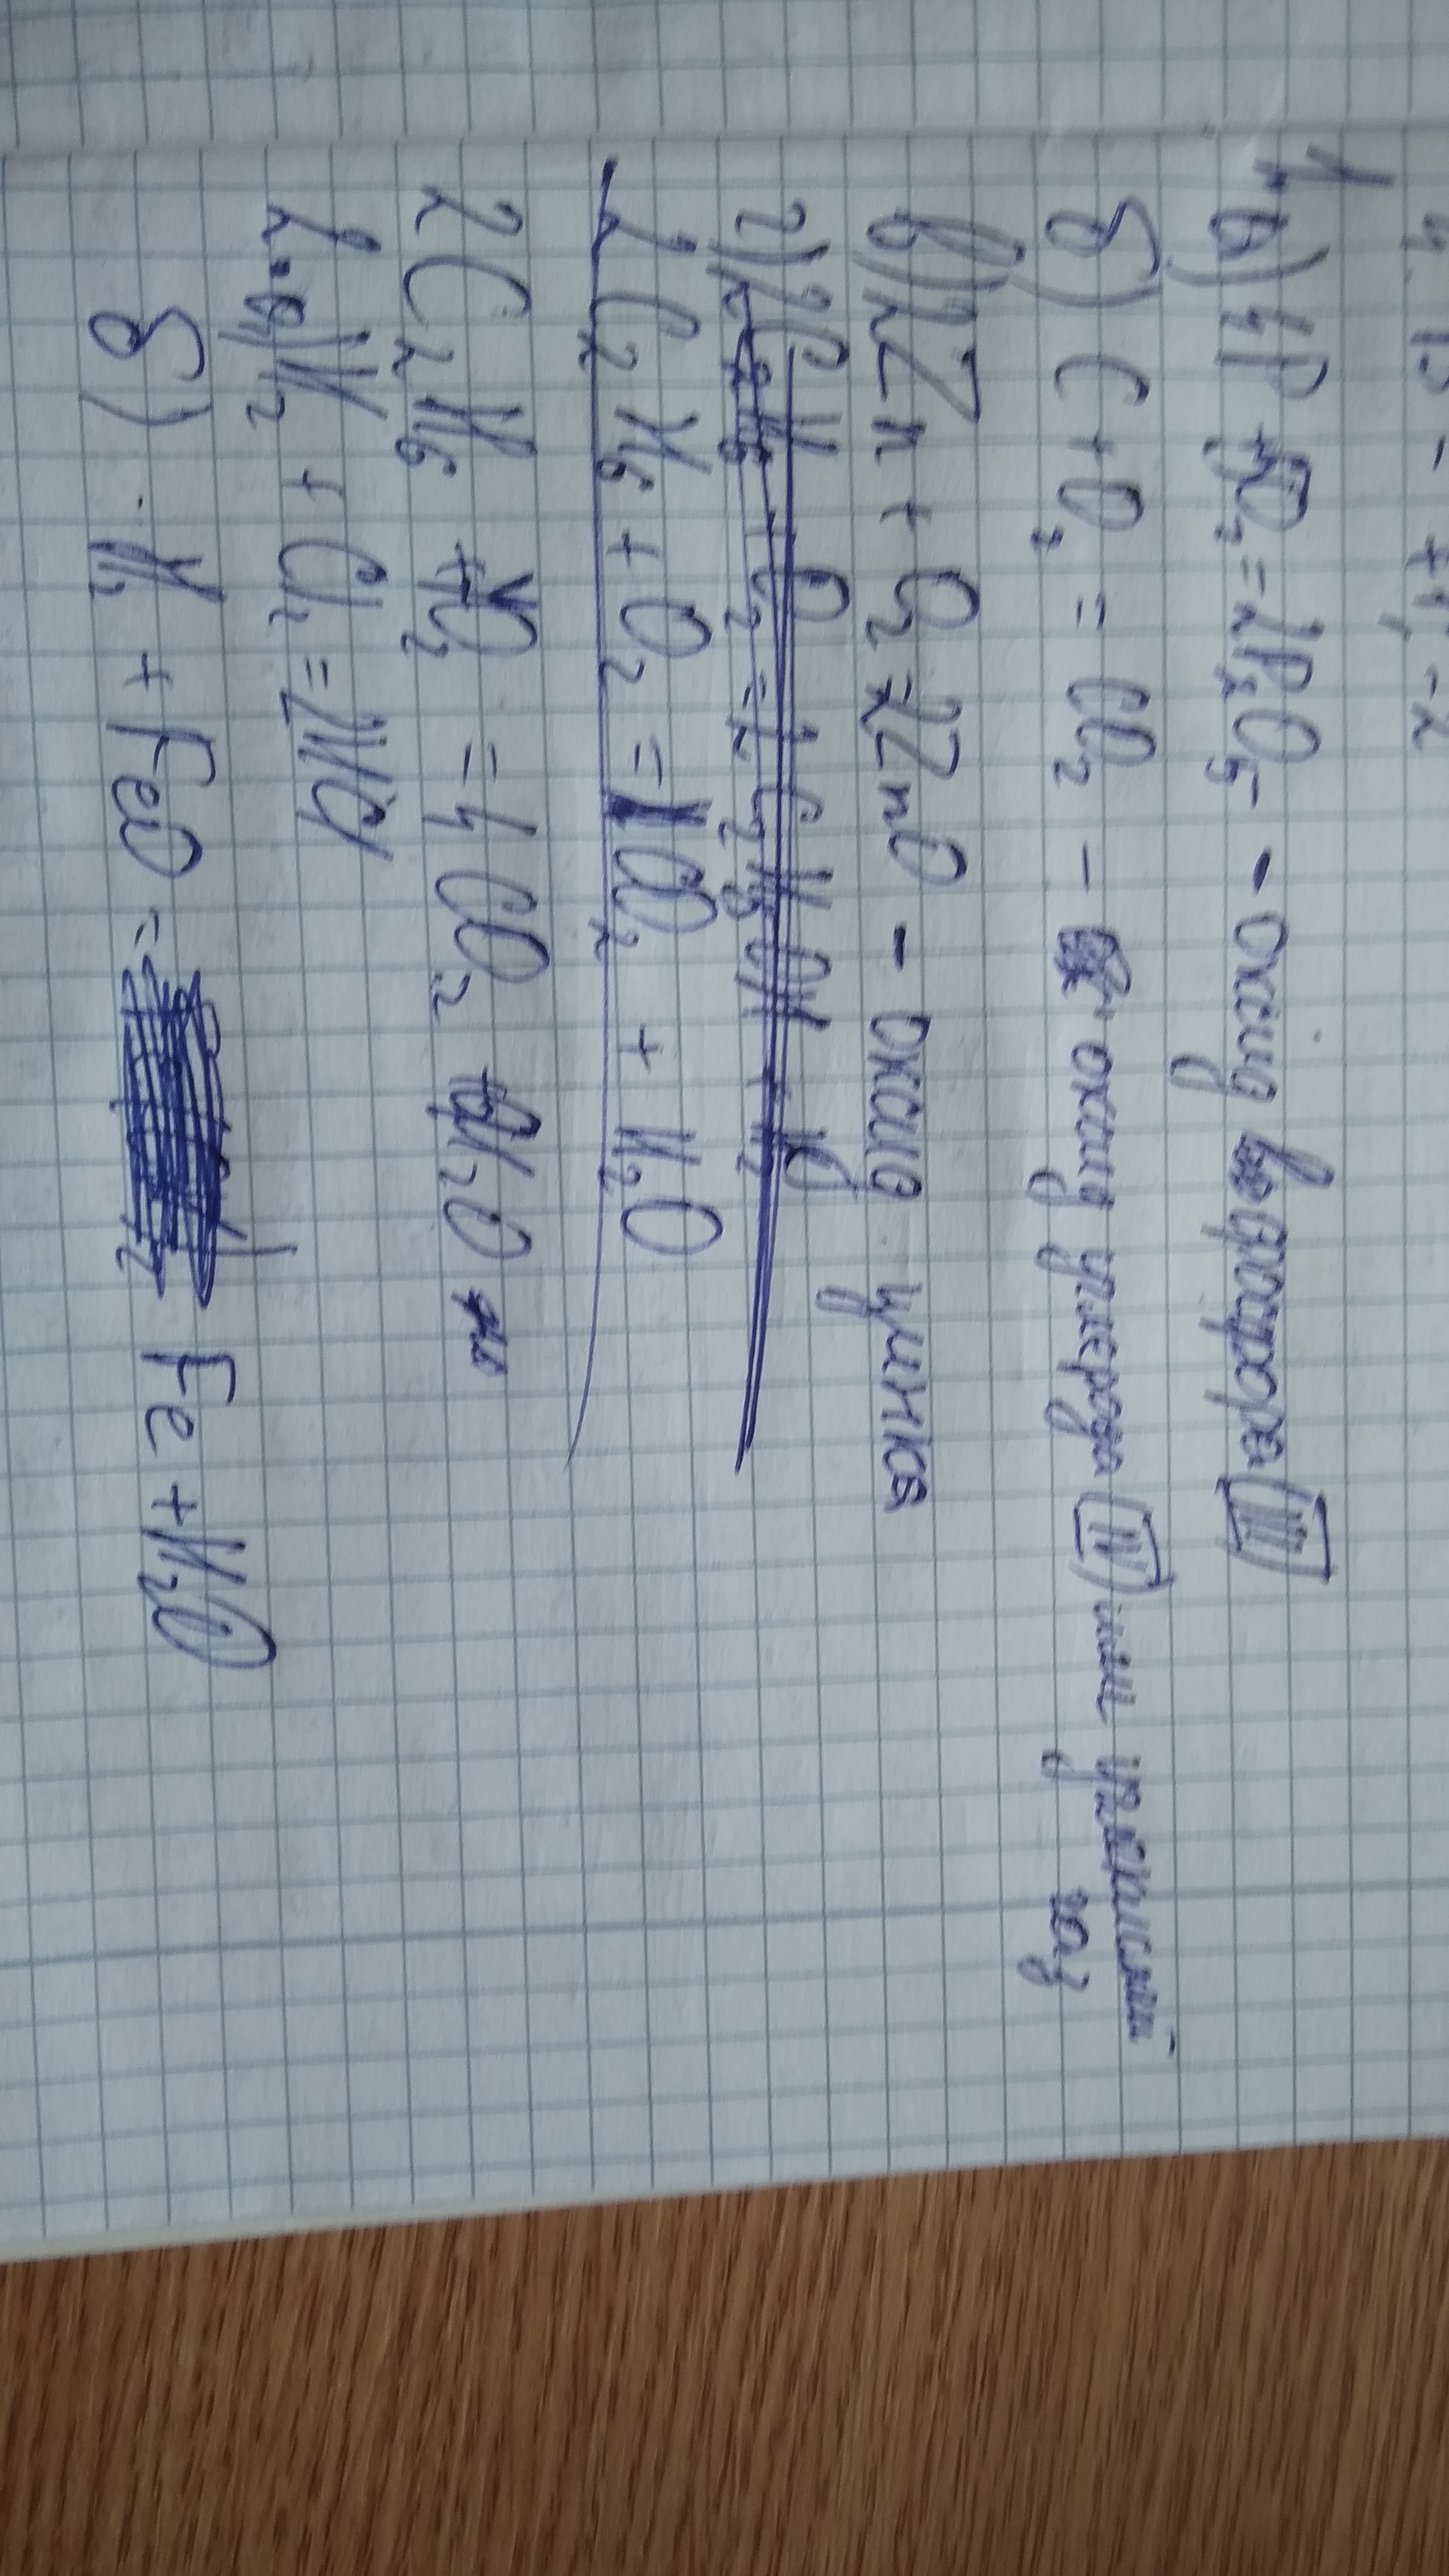 1. а) 4P + 5O₂ = 2P₂O₅ - оксид фосфора (III)
б) C + O₂ = CO₂ - оксид углерода (IV) или углекислый
газ
в) 2Zn + O₂ = 2ZnO - оксид цинка
C₂H₆ + O₂ = CO₂ + H₂O
2C₂H₆ + 7O₂ = 4CO₂ + 6H₂O
2. а) H₂ + Cl₂ = 2HCl
б) H₂ + FeO = Fe + H₂O